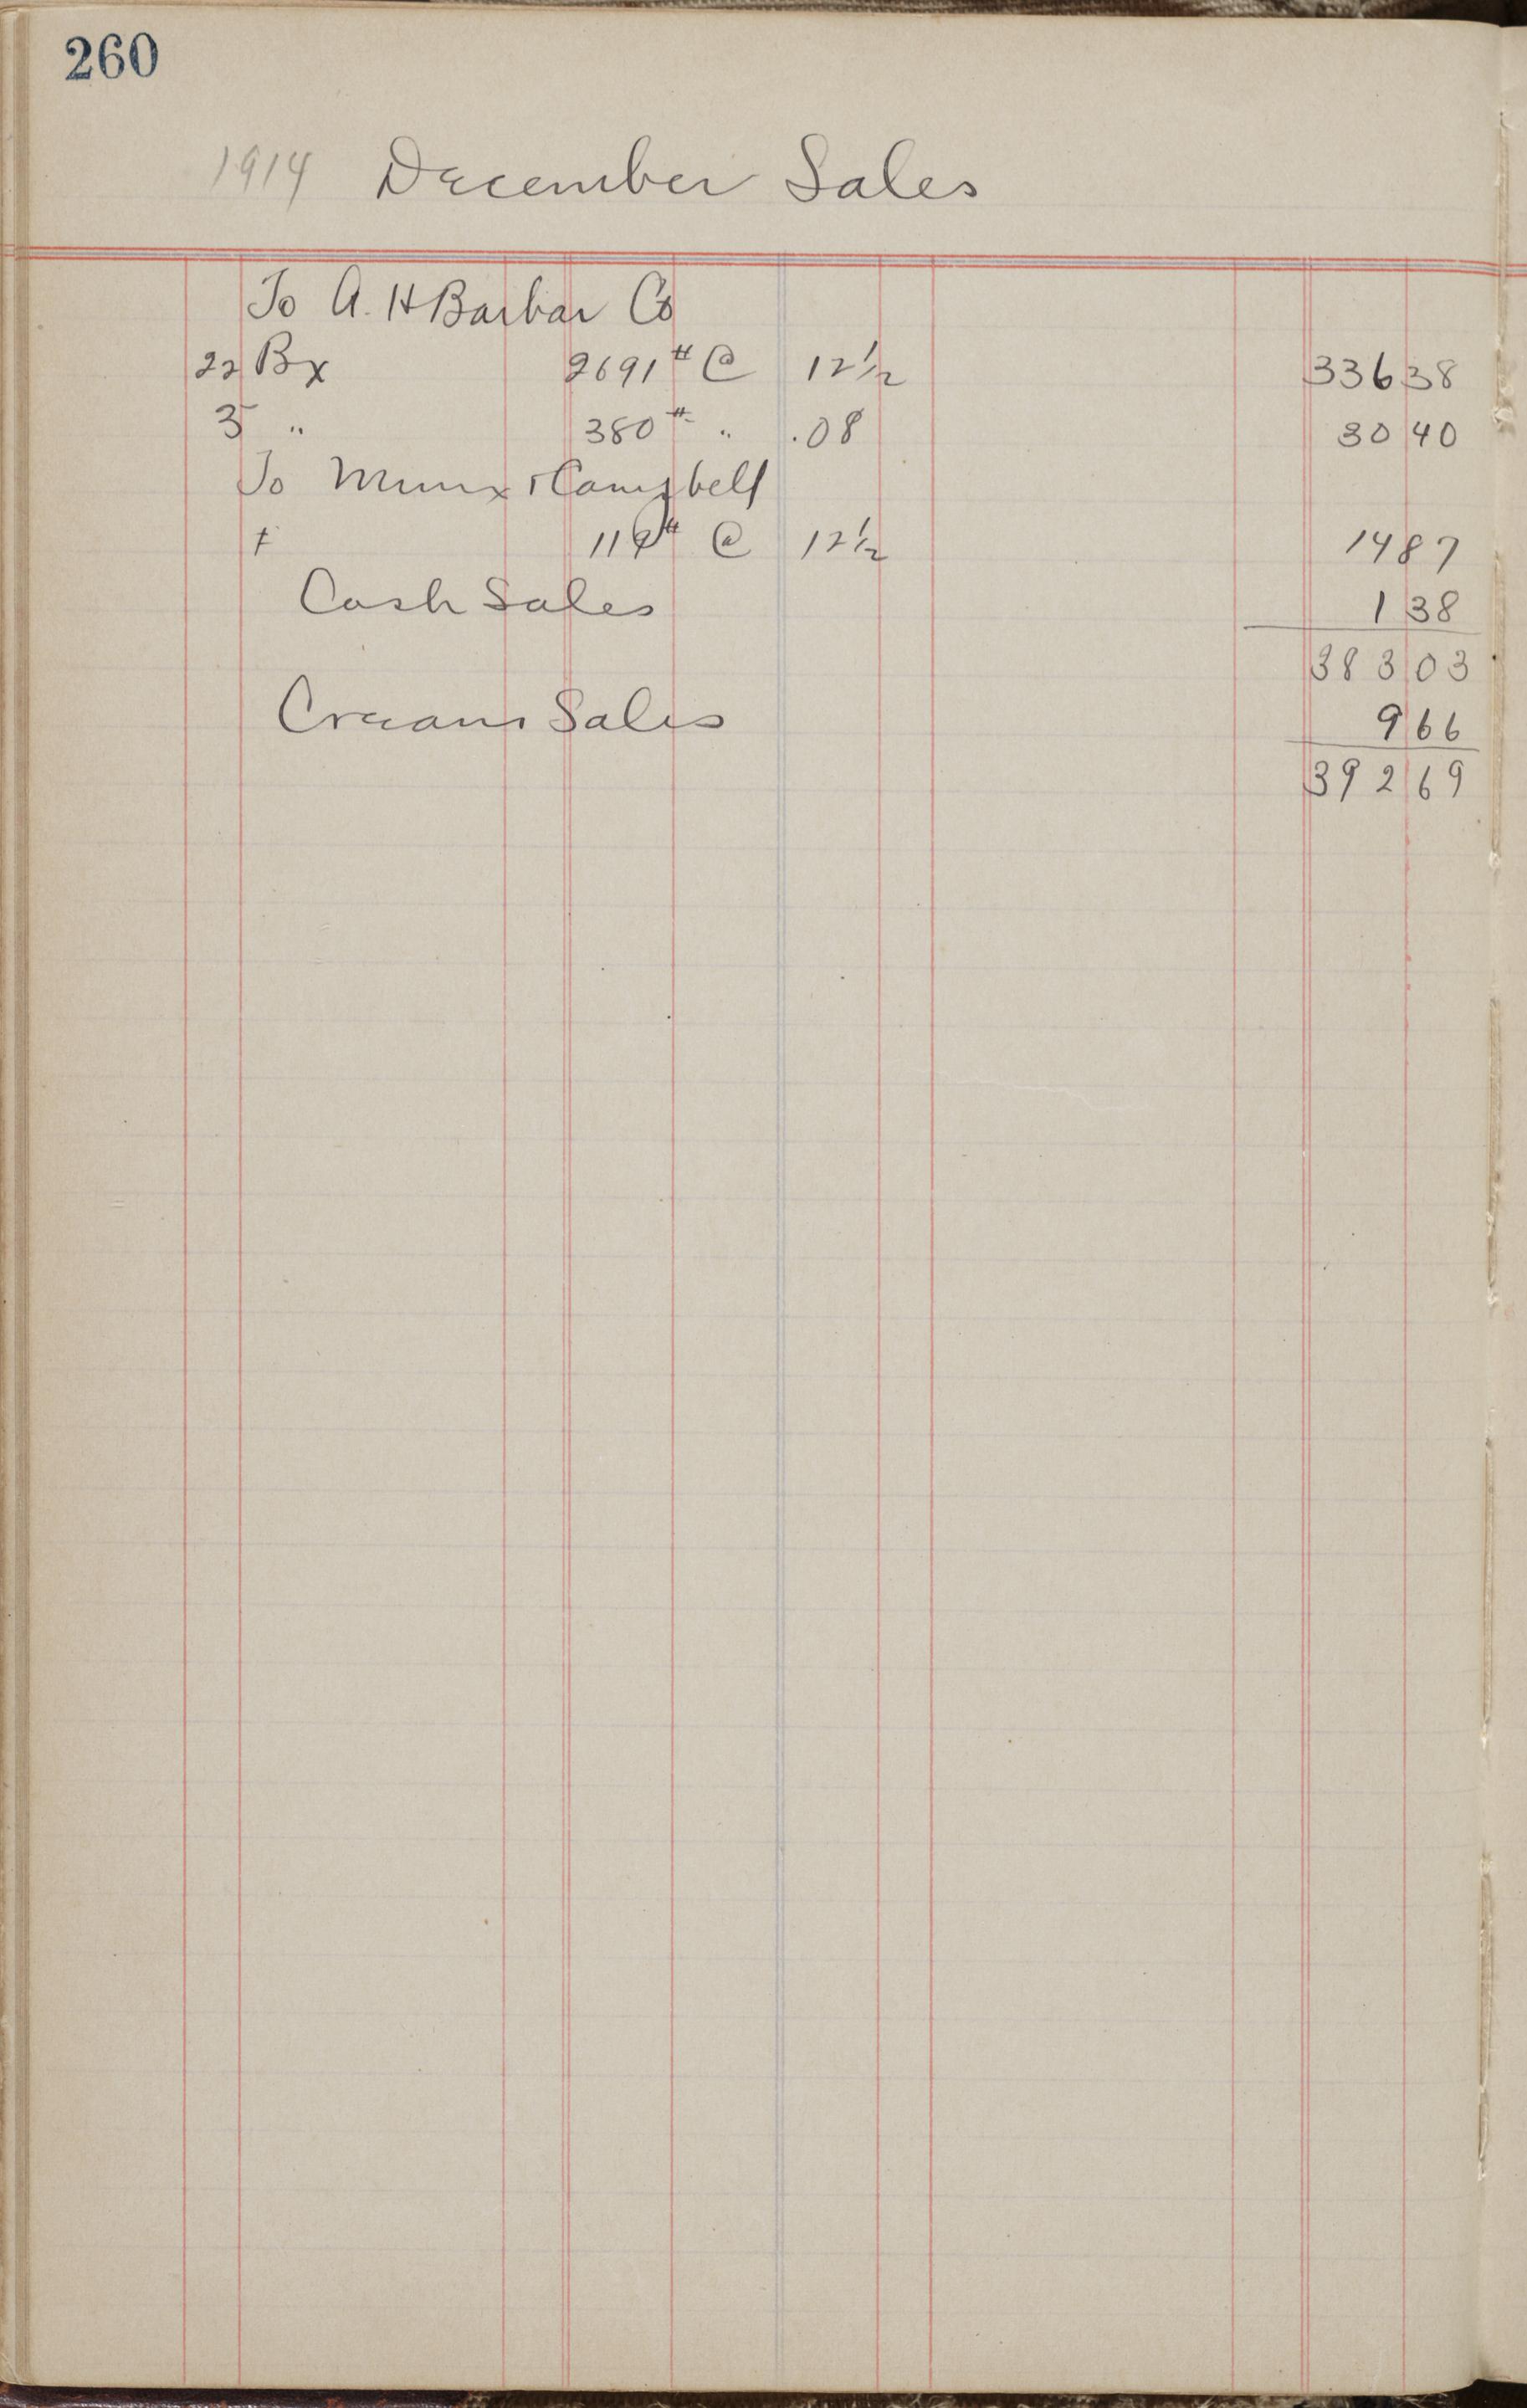 260
1914 December Sales
To A. H Barbar Co
22 Bx 2691# @ 12 1/2 336 38
3 " 380# " .08 30 40
To Munx + Campbell
+ 119# @ 12 1/2 14 87
Cash Sales 1 38
383 03
Cream Sales 9 66
392 69